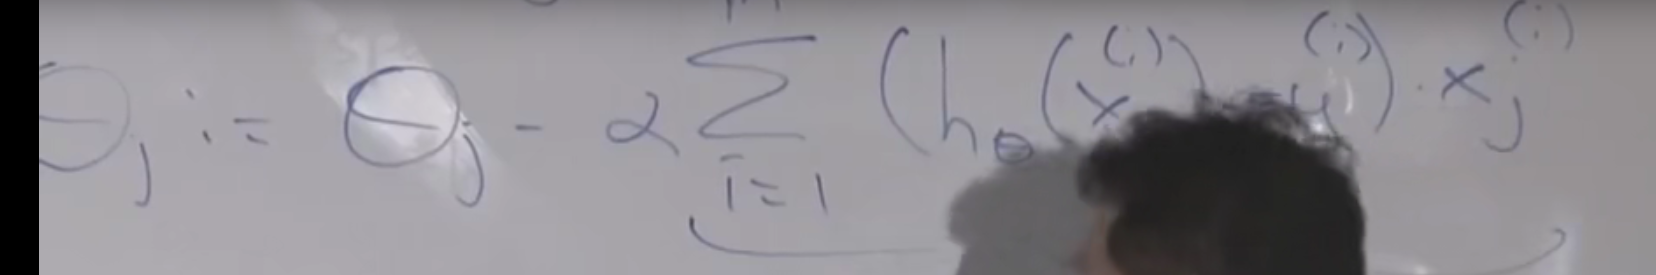 θj := θj - α Σ_{i=1}^{m} (hθ(x^(i)) - y^(i)) · xj^(i)